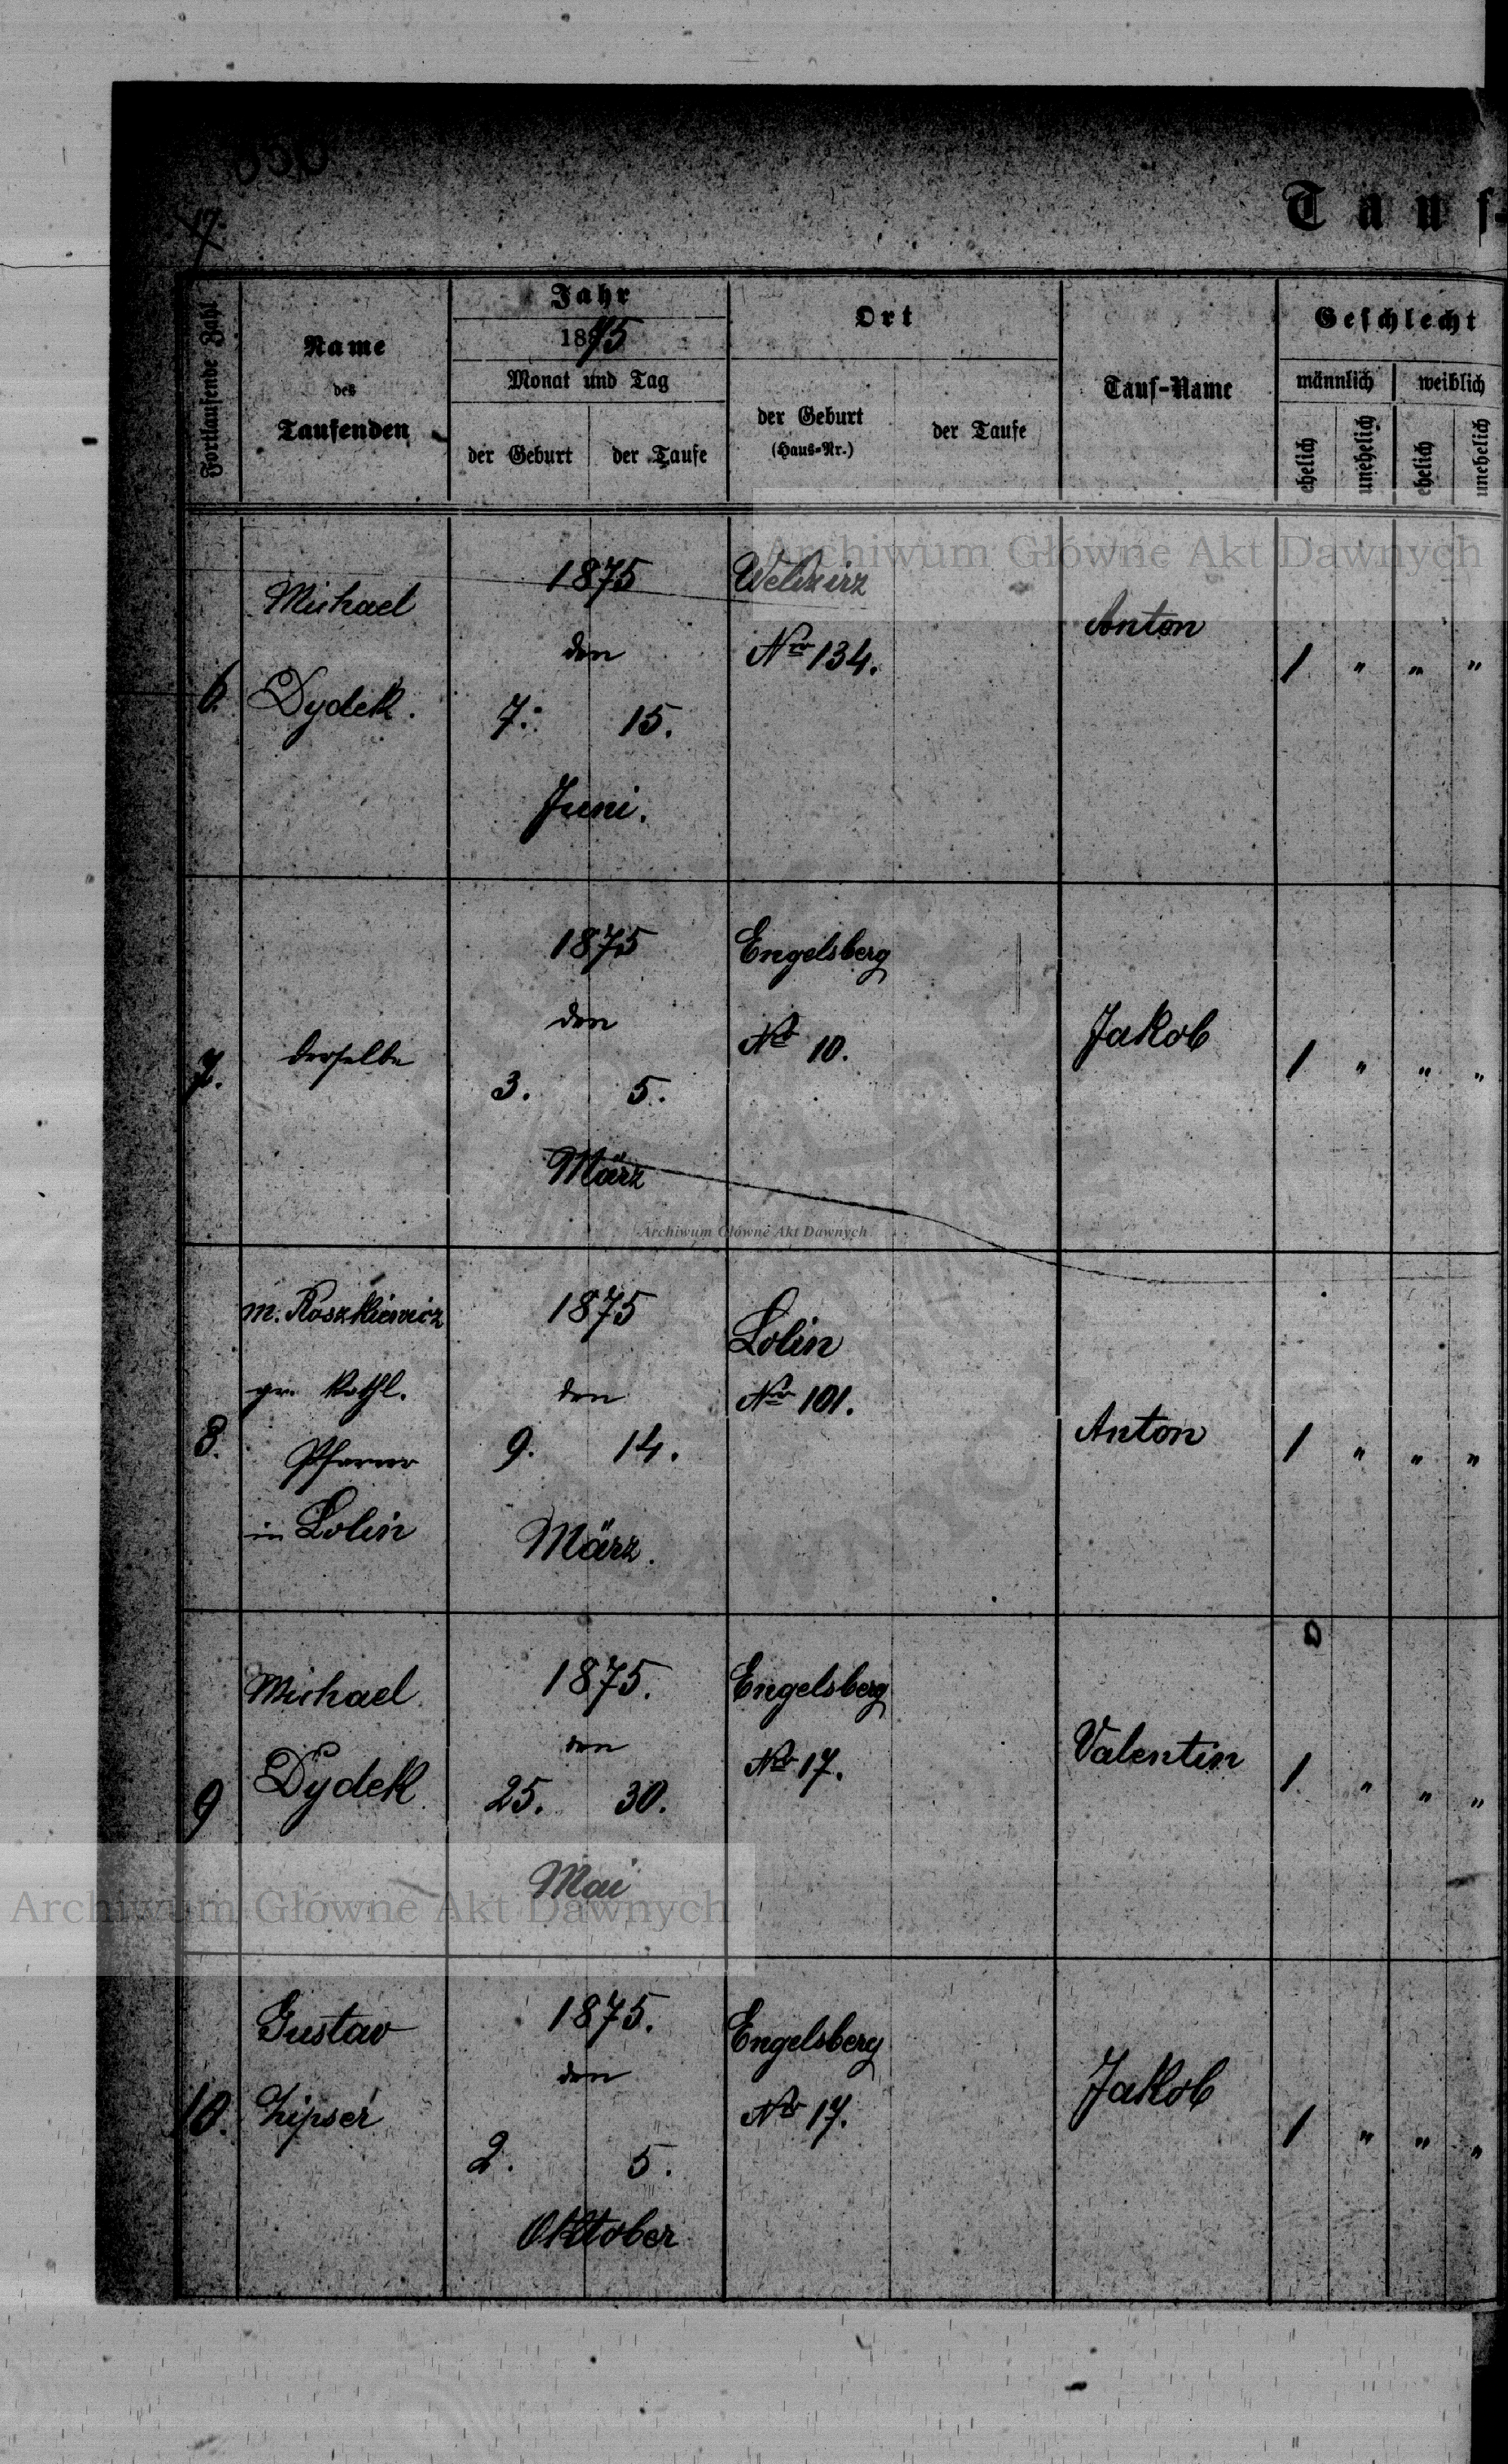 17.
Tauf-
Fortlaufende Zahl
Name
des
Taufenden
Jahr
1875
Monat und Tag
der Geburt
der Taufe
Ort
der Geburt
(Haus-Nr.)
der Taufe
Tauf-Name
Geschlecht
männlich
weiblich
ehelich
unehelich
ehelich
unehelich
Archiwum Główne Akt Dawnych
6.
Michael
Dydek.
1875
den
7. 15.
Juni.
Weldzirz
Nro 134.
Anton
1 " " "
7.
derselbe
1875
den
3. 5.
März
Engelsberg
Nro 10.
Jakob
1 " " "
Archiwum Główne Akt Dawnych
8.
m. Roszkiewicz
gr. kathl.
Pfarrer
in Lolin
1875
den
9. 14.
März.
Lolin
Nro 101.
Anton
1 " " "
9
Michael
Dydek
1875.
den
25. 30.
Mai
Engelsberg
Nro 17.
Valentin
1 " " "
Archiwum Główne Akt Dawnych
10.
Gustav
Zipser
1875.
den
2. 5.
Oktober
Engelsberg
Nro 17.
Jakob
1 " " "